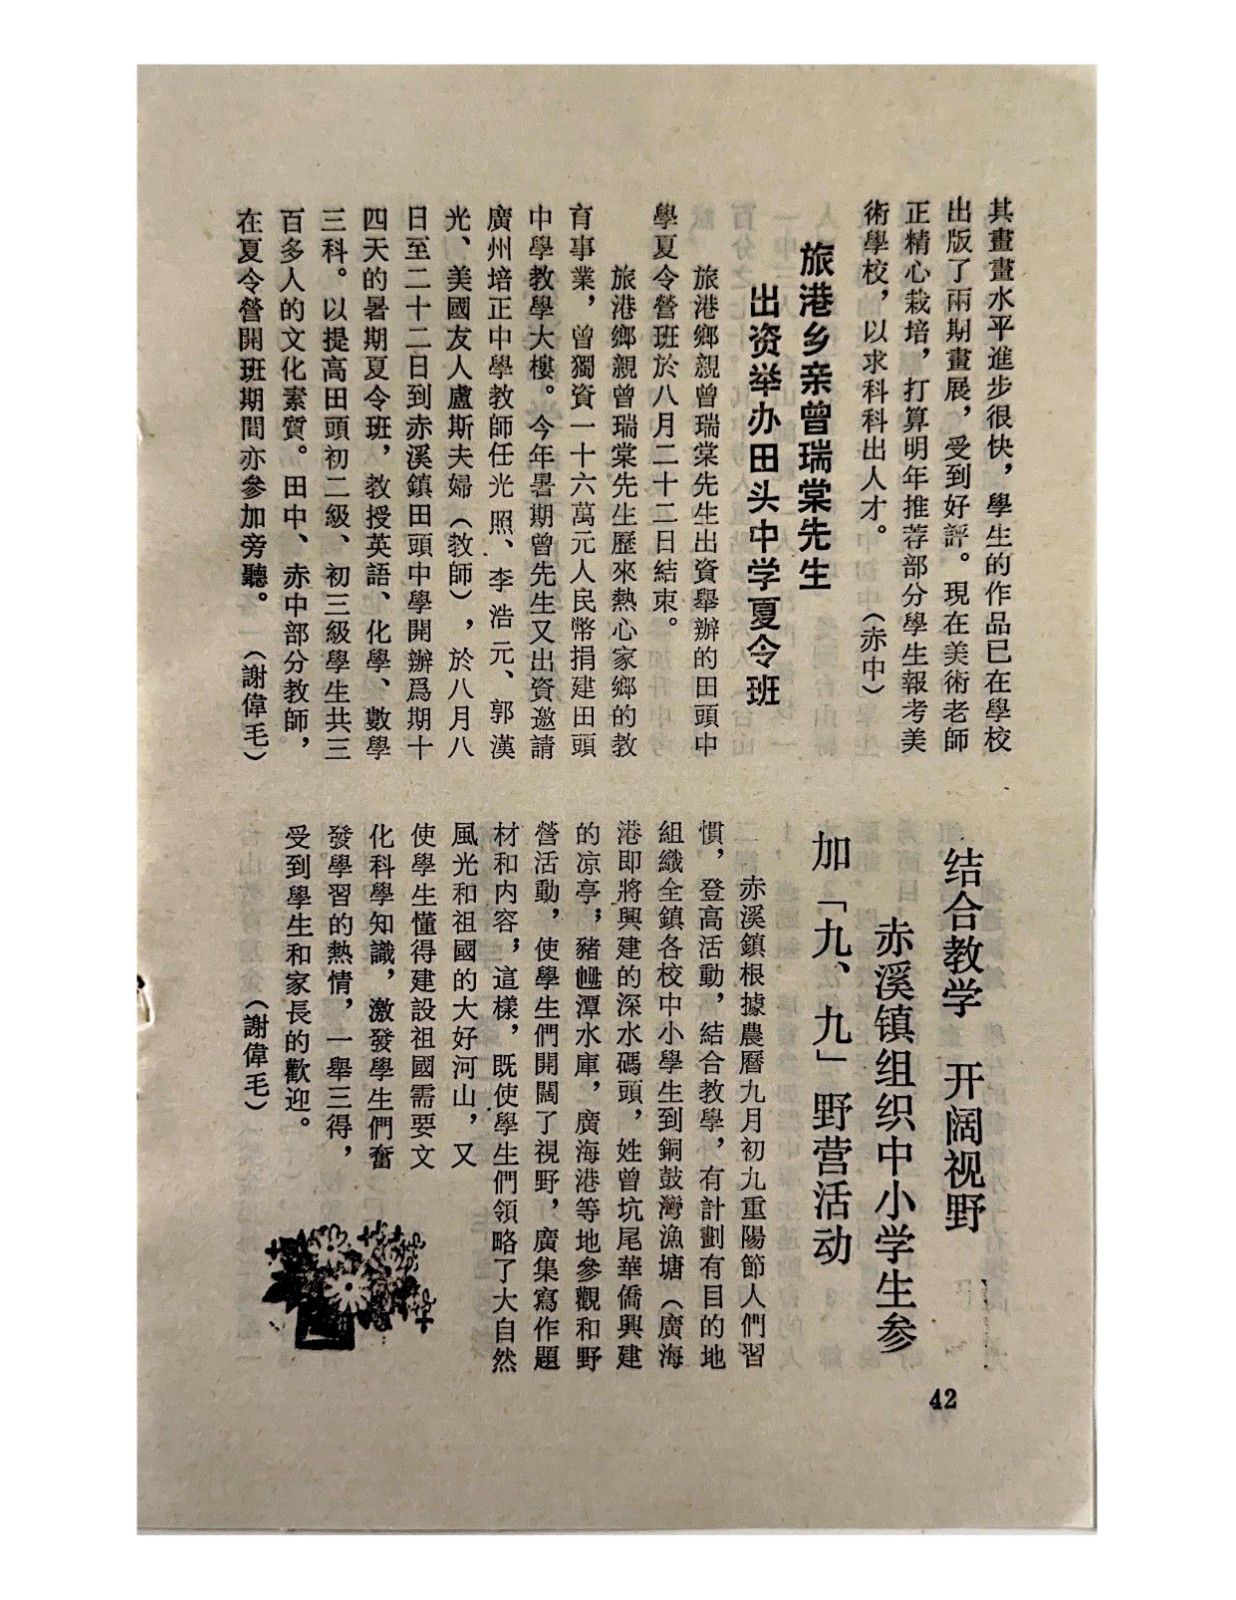 其畫畫水平進步很快，學生的作品已在學校
出版了兩期畫展，受到好評。現在美術老師
正精心栽培，打算明年推荐部分學生報考美
術學校，以求科科出人才。　（赤中）
旅港乡亲曾瑞棠先生
出资举办田头中学夏令班
旅港鄉親曾瑞棠先生出資舉辦的田頭中
學夏令營班於八月二十二日結束。
旅港鄉親曾瑞棠先生歷來熱心家鄉的教
育事業，曾獨資一十六萬元人民幣捐建田頭
中學教學大樓。今年暑期曾先生又出資邀請
廣州培正中學教師任光照、李浩元、郭漢
光、美國友人盧斯夫婦（教師），於八月八
日至二十二日到赤溪鎮田頭中學開辦爲期十
四天的暑期夏令班，教授英語、化學、數學
三科。以提高田頭初二級、初三級學生共三
百多人的文化素質。田中、赤中部分教師，
在夏令營開班期間亦參加旁聽。（謝偉毛）
结合教学　开阔视野
赤溪镇组织中小学生参
加「九、九」野营活动
赤溪鎮根據農曆九月初九重陽節人們習
慣，登高活動，結合教學，有計劃有目的地
組織全鎮各校中小學生到銅鼓灣漁塘（廣海
港即將興建的深水碼頭，姓曾坑尾華僑興建
的凉亭，豬潭水庫，廣海港等地參觀和野
營活動，使學生們開闊了視野，廣集寫作題
材和内容，這樣，既使學生們領略了大自然
風光和祖國的大好河山，又
使學生懂得建設祖國需要文
化科學知識，激發學生們奮
發學習的熱情，一舉三得，
受到學生和家長的歡迎。
（謝偉毛）
42